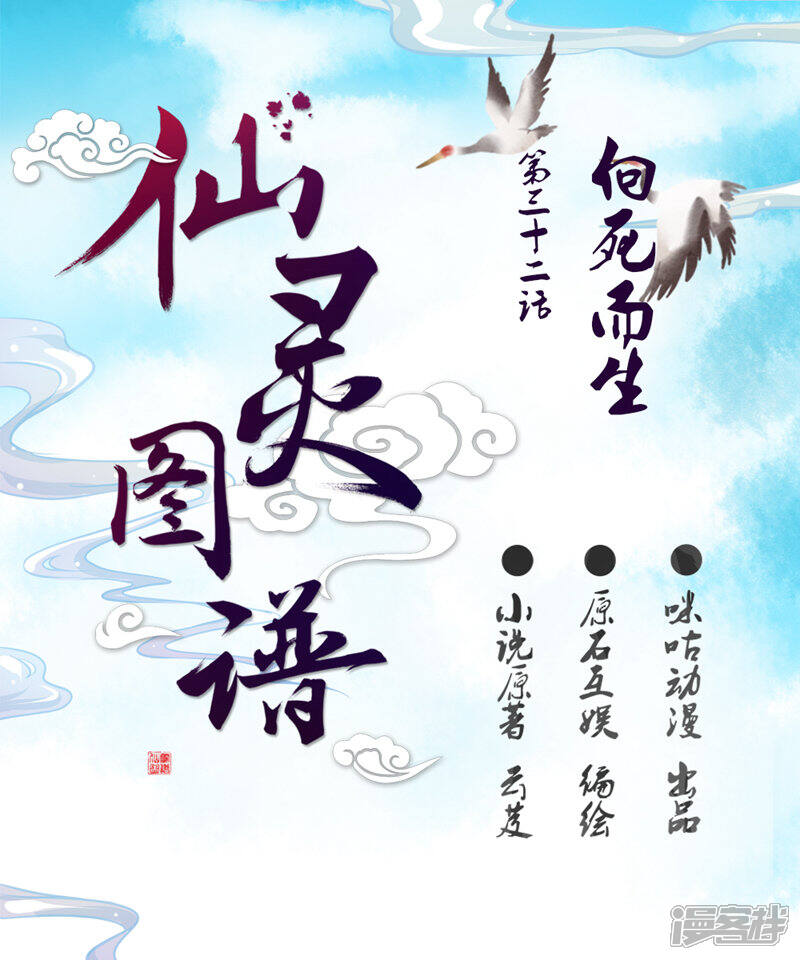 仙灵图谱
第三十二话
向死而生
咪咕动漫 出品
原石互娱 编绘
小说原著 云芨
漫客栈